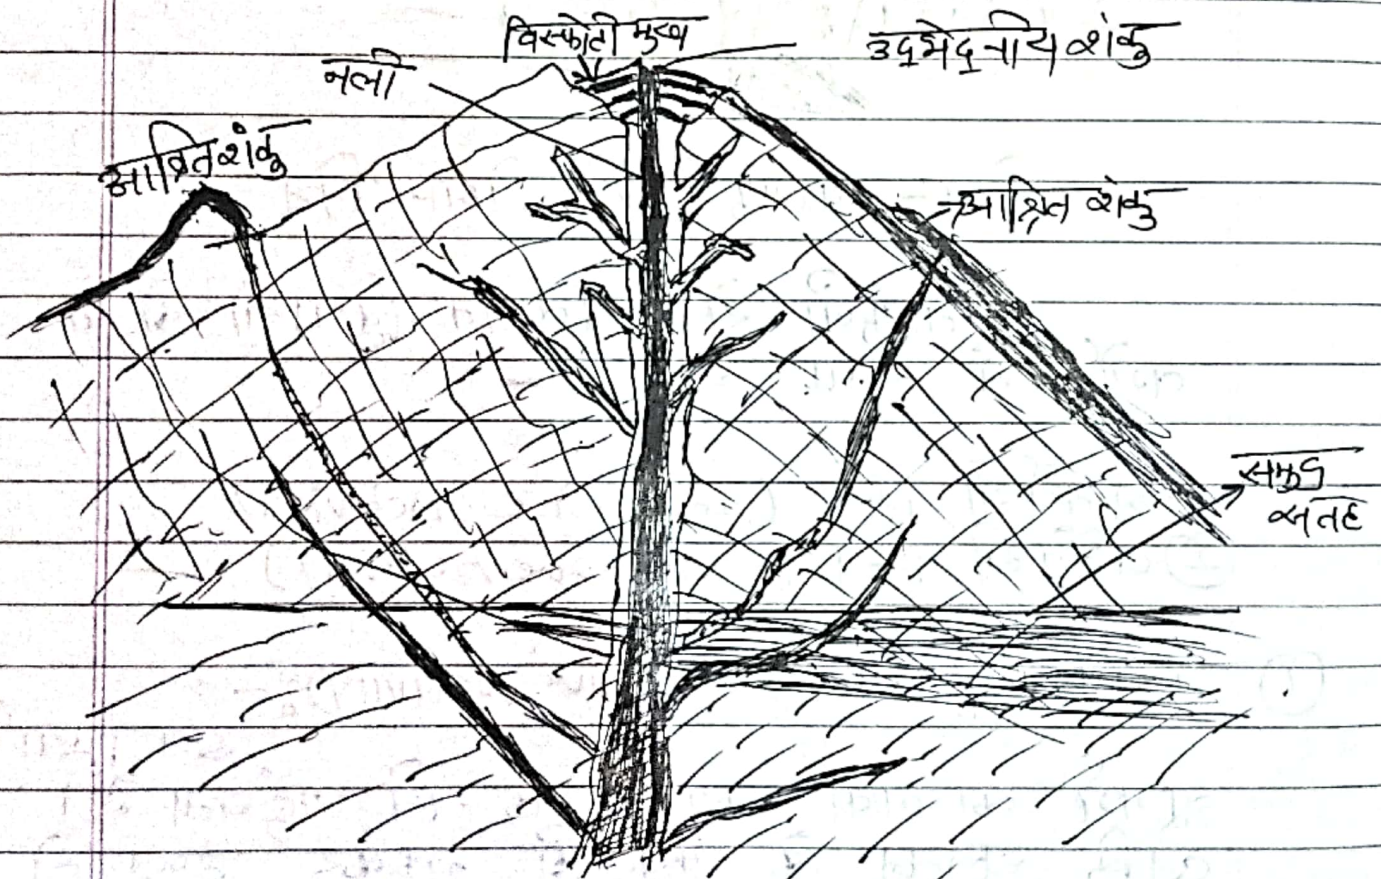 विस्फोटी मुख
उद्भेदनीय शंकु
नली
आश्रित शंकु
आश्रित शंकु
समुद्र
सतह